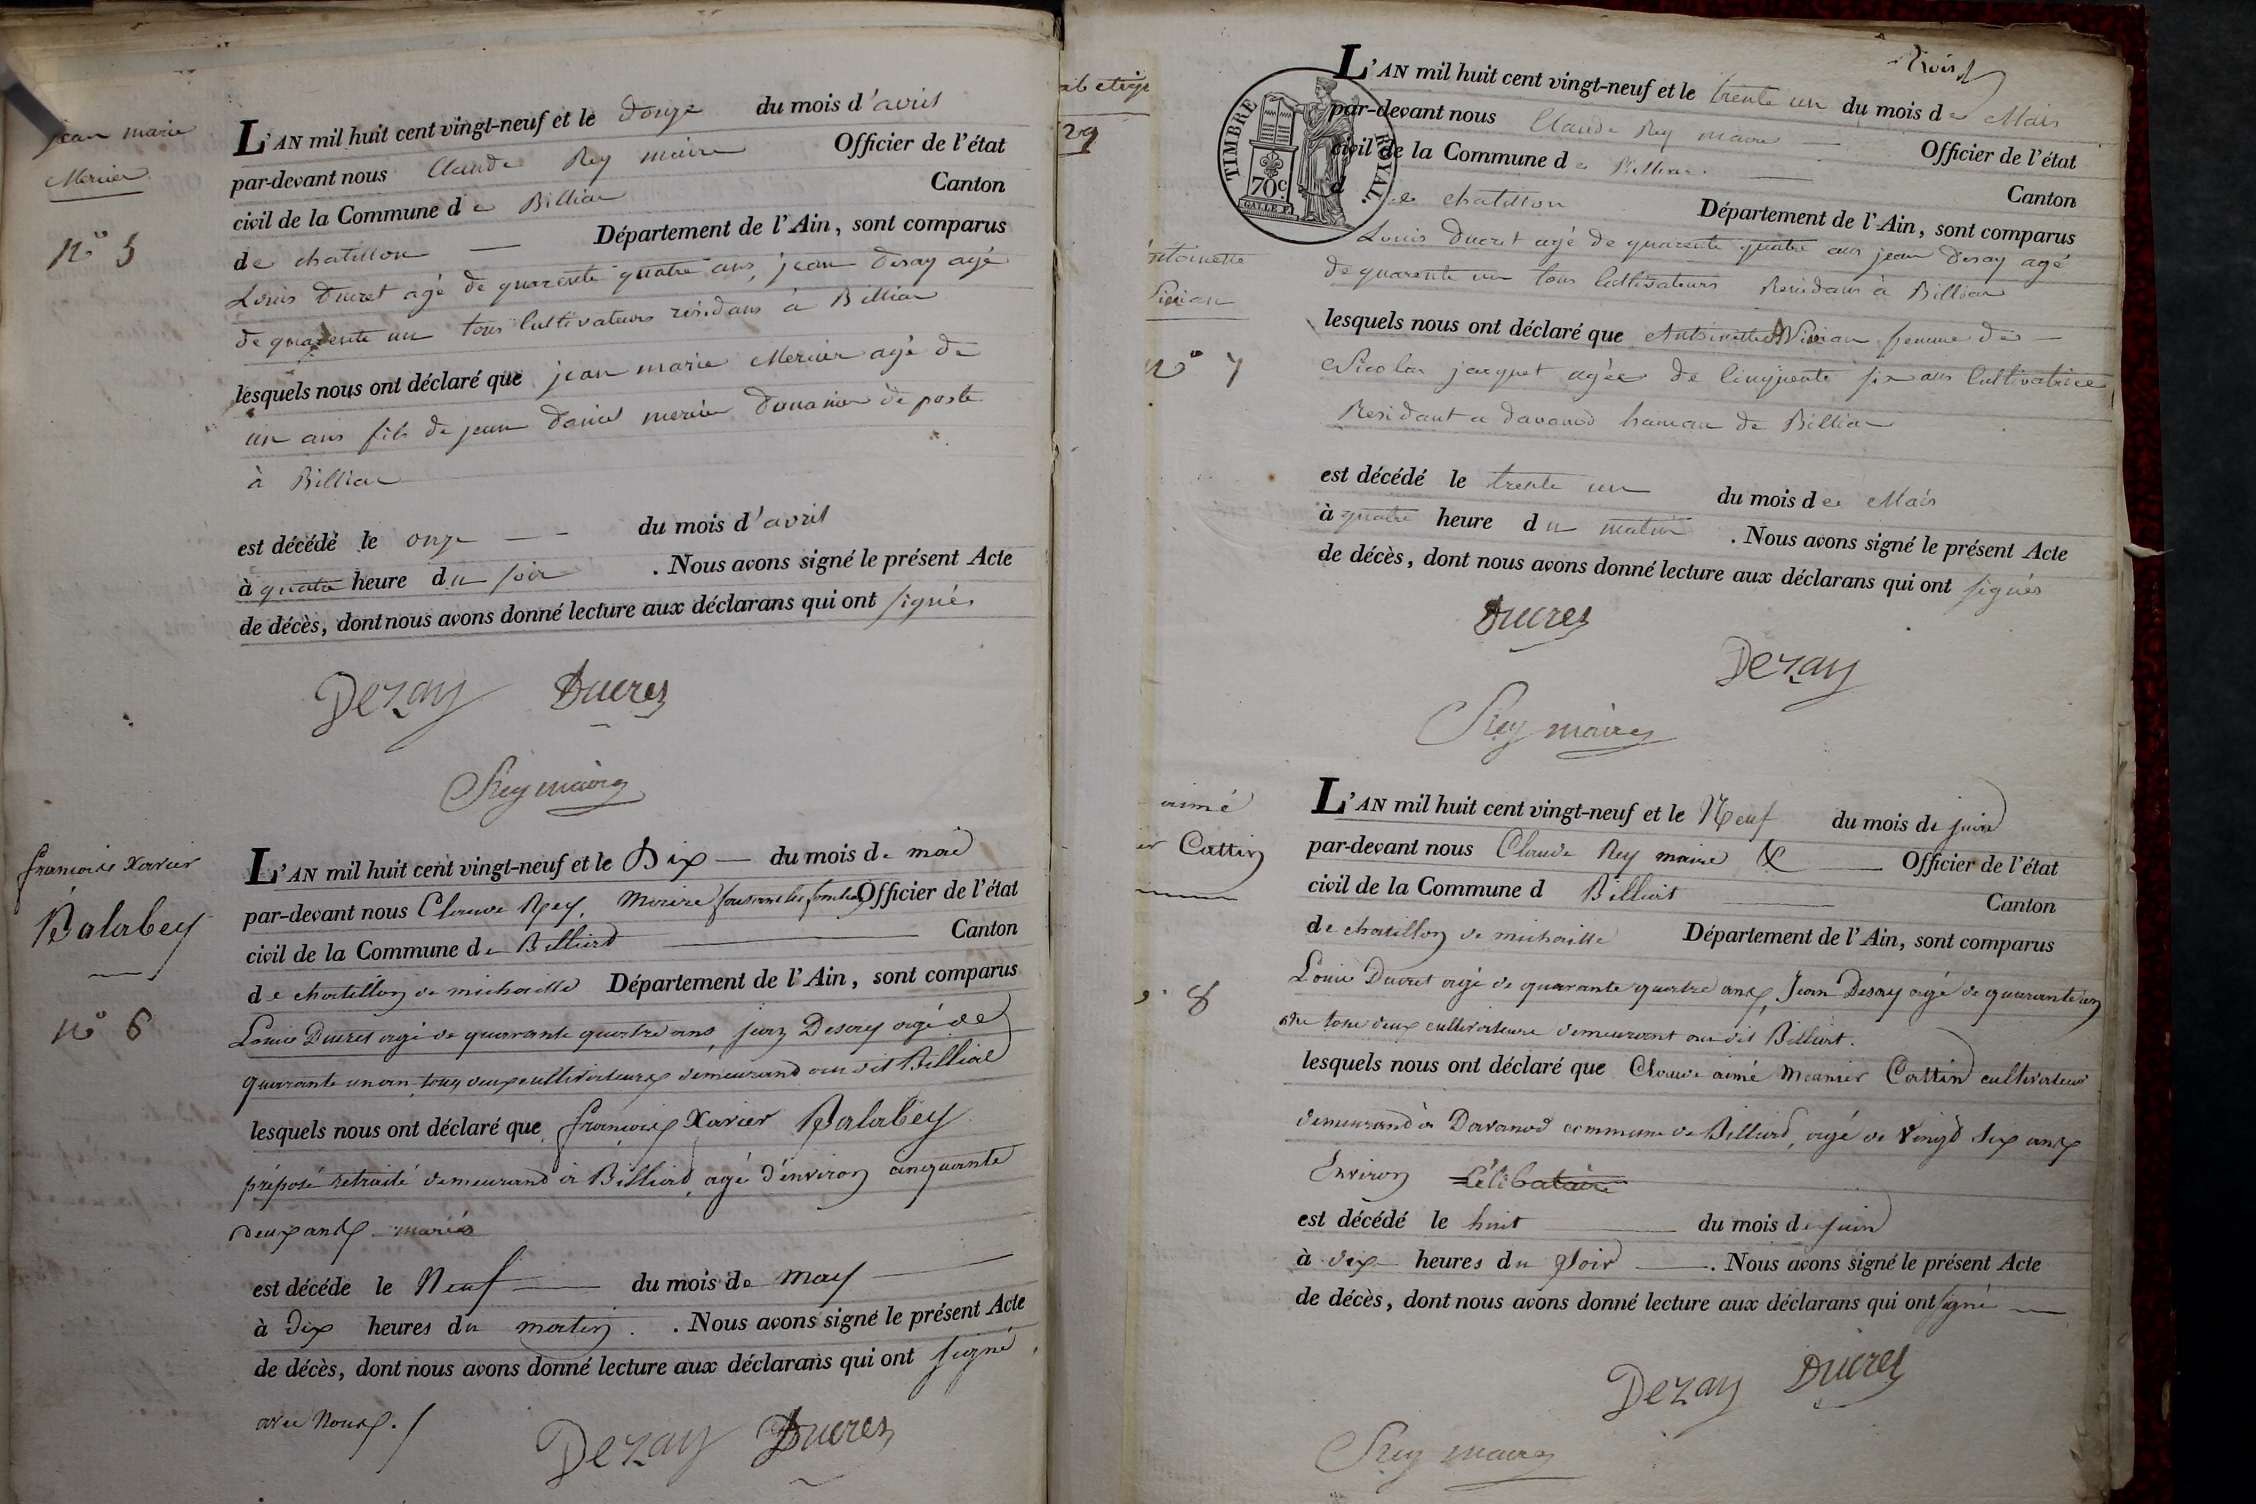 jean marie
Mercier
n° 5
L'AN mil huit cent vingt-neuf et le douze du mois d'avril
par-devant nous Claude Rey maire Officier de l'état
civil de la Commune de Billiat Canton
de chatillon Département de l'Ain, sont comparus
Louis Ducret agé de quarente quatre ans, jean Desay agé
de quarente un tous Cultivateurs résidans à Billiat
lesquels nous ont déclaré que jean marie Mercier agé de
un ans fils de jean mercier Douanier de poste
à Billiat
est décédé le onze du mois d'avril
à quatre heure du soir . Nous avons signé le présent Acte
de décès, dont nous avons donné lecture aux déclarans qui ont signés
Dezay Ducret
Rey maire
françois Xavier
Balabey
n° 6
L'AN mil huit cent vingt-neuf et le Dix du mois de mai
par-devant nous Claude Rey, Maire Officier de l'état
civil de la Commune de Billiat Canton
de chatillon de michaille Département de l'Ain, sont comparus
Louis Ducret agé de quarante quatre ans, jean Desay agé de
quarante un an tous deux cultivateurs demeurand au dit Billiat
lesquels nous ont déclaré que françois Xavier Balabey
préposé retraité demeurand à Billiat, agé d'environ cinquante
deux ans mariés
est décédé le Neuf du mois de may
à dix heures du matin . Nous avons signé le présent Acte
de décès, dont nous avons donné lecture aux déclarans qui ont signé
avec Nous.
Dezay Ducret
29
TIMBRE ROYAL.
70c
L'AN mil huit cent vingt-neuf et le trente un du mois de Mais
par-devant nous Claude Rey maire Officier de l'état
civil de la Commune de Billiat Canton
de chatillon Département de l'Ain, sont comparus
Louis Ducret agé de quarente quatre ans jean Desay agé
de quarente un tous Cultivateurs Residans à Billiat
ntoinette
n° 7
lesquels nous ont déclaré que Antoinette Vivian femme de
Nicolas jacquet agée de Cinquente six ans Cultivatrice
Residant a davanod hameau de Billiat
est décédé le trente un du mois de Mais
à quatre heure du matin . Nous avons signé le présent Acte
de décès, dont nous avons donné lecture aux déclarans qui ont signés
Ducret
Dezay
Rey maire
aimé
Cattin
8
L'AN mil huit cent vingt-neuf et le Neuf du mois de juin
par-devant nous Claude Rey maire Officier de l'état
civil de la Commune d Billiat Canton
de chatillon de michaille Département de l'Ain, sont comparus
Louis Ducret agé de quarante quatre ans, Jean Desay agé de quarante un
tous deux cultivateurs demeurant au dit Billiat.
lesquels nous ont déclaré que Claude aimé Meunier Cattin cultivateur
demeurand à Davanod commune de Billiat, agé de Vingt six ans
Environ Célibataire
est décédé le huit du mois de juin
à dix heures du Soir . Nous avons signé le présent Acte
de décès, dont nous avons donné lecture aux déclarans qui ont signé
Dezay Ducret
Rey maire